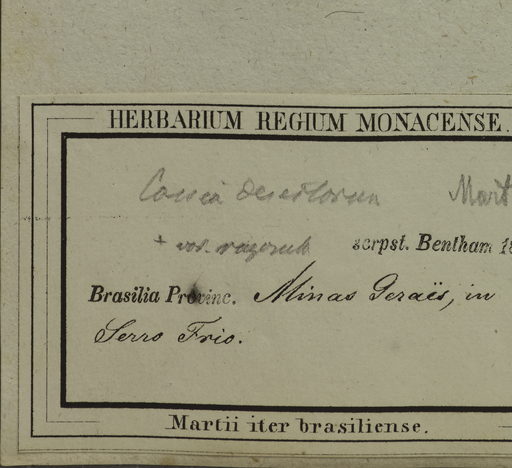 HERBARIUM REGIUM MONACENSE.
Cassia desertorum Mart
+ var. scrpst. Bentham 18
Brasilia Provinc. Minas Geraës, in
Serro Frio.
Martii iter brasiliense.